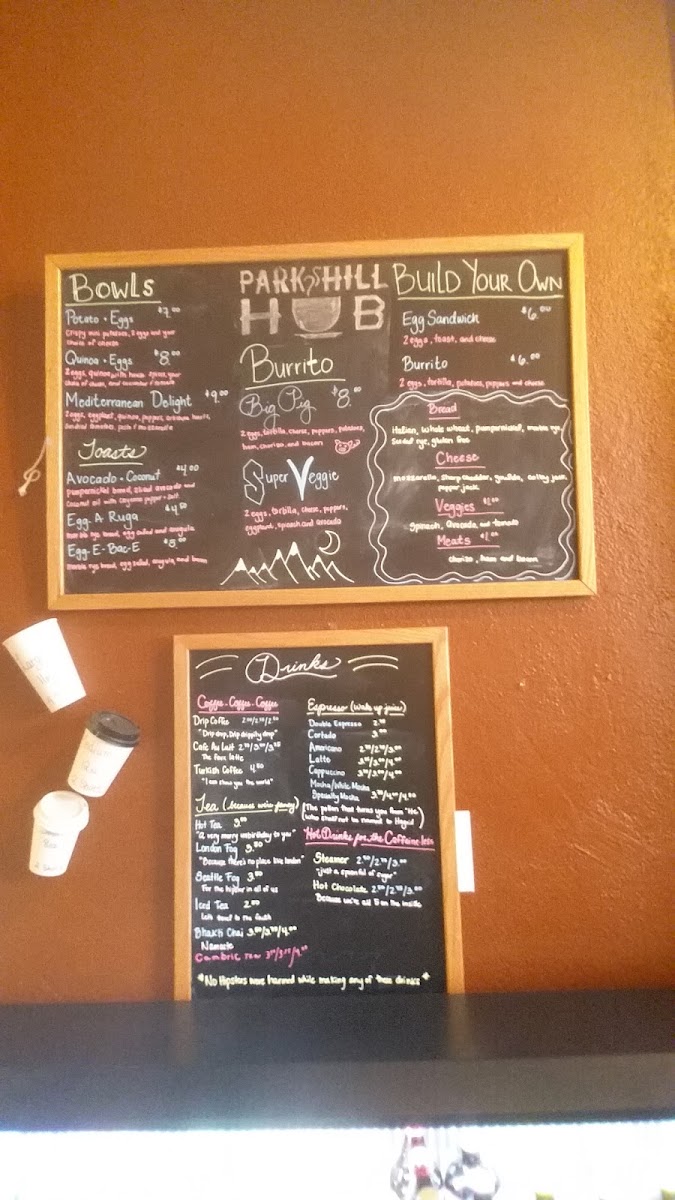 BOWLS
Potato + Eggs $7.00
Crispy mini potatoes, 2 eggs and your
choice of cheese
Quinoa + Eggs $8.00
2 eggs, quinoa with house spices, your
Mediterranean Delight $9.00
2 eggs, eggplant, quinoa, peppers, artichoke hearts,
Toasts
Avocado + Coconut $4.00
pumpernickel bread, sliced avocado and
coconut oil with cayenne pepper + salt
Egg-A-Ruga $4.50
marble rye bread, egg salad and arugula
Egg-E-Bac-E $5.00
marble rye bread, egg salad, arugula and bacon
PARK HILL
HUB
Burrito
Big Pig $8.00
2 eggs, tortilla, cheese, peppers, potatoes,
ham, chorizo, and bacon
Super Veggie
2 eggs, tortilla, cheese, peppers,
eggplant, spinach and avocado
BUILD YOUR OWN
Egg Sandwich $6.00
2 eggs, toast, and cheese
Burrito $6.00
2 eggs, tortilla, potatoes, peppers and cheese
Bread
Italian, whole wheat, pumpernickel, marble rye,
rye, gluten free
Cheese
mozzarella, sharp cheddar, gouda, colby jack,
pepper jack
Veggies $1.00
Spinach, avocado, and tomato
Meats $1.00
chorizo, ham and bacon
Drinks
Coffee-Coffee-Coffee
Drip Coffee
"Drip drop, Drip drippity drop"
Cafe Au Lait
The faux latte
Turkish Coffee 4.50
"I can show you the world"
Tea (because we're fancy)
Hot Tea 3.00
"A very merry unbirthday to you"
London Fog 3.50
"Because there's no place like london"
Seattle Fog 3.50
For the hipster in all of us
Iced Tea 2.00
Bhakti Chai 3.00/3.50/4.00
Namaste
Cambric Tea
Espresso (Wake up juice)
Double Espresso
Cortado 3.00
Americano 2.00/2.50/3.00
Latte 3.00/3.50/4.00
Cappuccino 3.00/3.50/4.00
Mocha/White Mocha
Specialty Mocha 3.50/4.00/4.50
(The potion that turns you from "He
who shall not be named" to Hagrid)
Hot Drinks for the Caffeine-less
Steamer 2.00/2.50/3.00
"just a spoonful of sugar"
Hot Chocolate 2.00/2.50/3.00
Because we're all 5 on the inside
*No Hipsters were harmed while making any of these drinks*